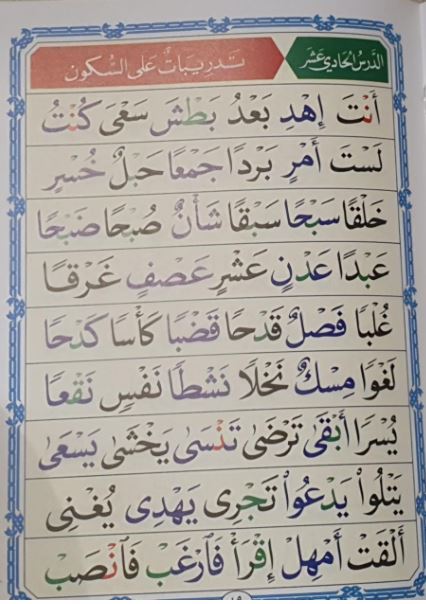 الدَّرْسُ الْحَادِي عَشَرَ تَدْرِيبَاتٌ عَلَى السُّكُونِ
أَنْتَ إِهْدِ بَعْدُ بَطْشَ سَعْىَ كُنْتُ
لَسْتَ أَمْرٍ بَرْدًا جَمْعًا حَبْلٌ خُسْرٍ
خَلْقًا سَبْحًا سَبْقًا شَأْنٌ صُبْحًا ضَبْحًا
عَبْدًا عَدْنٍ عَشْرٍ عَصْفٍ غَرْقًا
غُلْبًا فَصْلٌ قَدْحًا قَضْبًا كَأْسًا كَدْحًا
لَغْوًا مِسْكٌ نَخْلًا نَشْطًا نَفْسٍ نَقْعًا
يُسْرًا أَبْقَىٰ تَرْضَىٰ تَنْسَىٰ يَخْشَىٰ يَسْعَىٰ
يَتْلُوا۟ يَدْعُوا۟ تَجْرِى يَهْدِى يُغْنِى
أَلْقَتْ أَمْهِلْ إِقْرَأْ فَارْغَبْ فَانْصَبْ
١٩